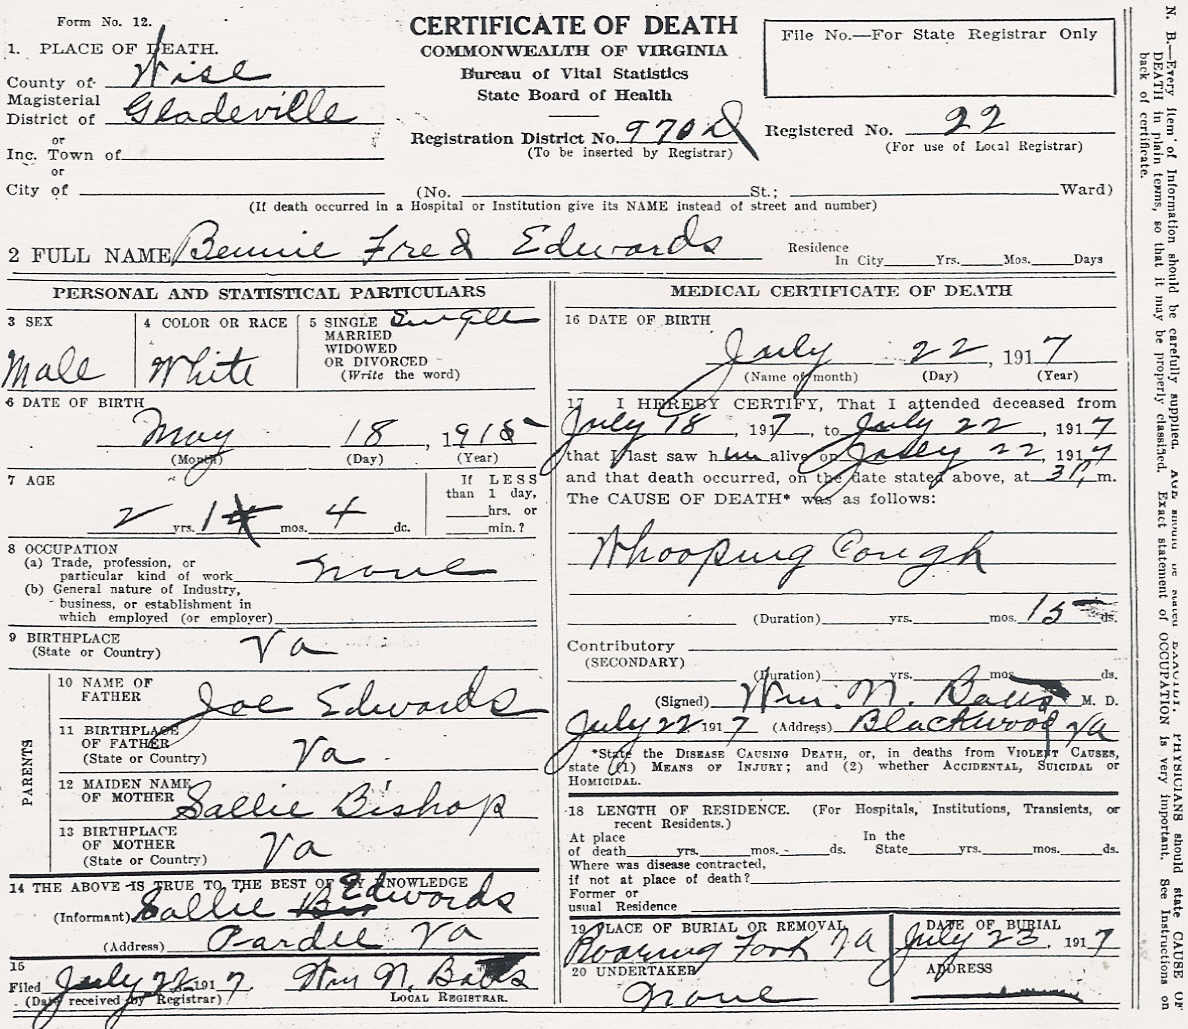 Form No. 12.
CERTIFICATE OF DEATH
COMMONWEALTH OF VIRGINIA
Bureau of Vital Statistics
State Board of Health
File No.—For State Registrar Only
1. PLACE OF DEATH.
County of Wise
Magisterial
District of Gladeville
or
Inc. Town of
or
City of
Registration District No. 970 D
(To be inserted by Registrar)
Registered No. 22
(For use of Local Registrar)
(No. St.; Ward)
(If death occurred in a Hospital or Institution give its NAME instead of street and number)
2 FULL NAME Bennie Fred Edwards
Residence
In City Yrs. Mos. Days
PERSONAL AND STATISTICAL PARTICULARS
3 SEX
Male
4 COLOR OR RACE
White
5 SINGLE Single
MARRIED
WIDOWED
OR DIVORCED
(Write the word)
6 DATE OF BIRTH
May 18, 1915
(Month) (Day) (Year)
7 AGE
2 yrs. 1 mos. 4 dc.
If LESS
than 1 day,
hrs. or
min.?
8 OCCUPATION
(a) Trade, profession, or
particular kind of work none
(b) General nature of Industry,
business, or establishment in
which employed (or employer)
9 BIRTHPLACE
(State or Country) Va
PARENTS
10 NAME OF
FATHER Joe Edwards
11 BIRTHPLACE
OF FATHER
(State or Country) Va.
12 MAIDEN NAME
OF MOTHER Sallie Bishop
13 BIRTHPLACE
OF MOTHER
(State or Country) Va
14 THE ABOVE IS TRUE TO THE BEST OF MY KNOWLEDGE
(Informant) Sallie Edwards
(Address) Pardee Va
15
Filed July 22 1917 Wm N. Botts
(Date received by Registrar) LOCAL REGISTRAR.
MEDICAL CERTIFICATE OF DEATH
16 DATE OF BIRTH
July 22, 1917
(Name of month) (Day) (Year)
17 I HEREBY CERTIFY, That I attended deceased from
July 18, 1917, to July 22, 1917
that I last saw him alive on July 22, 1917
and that death occurred, on the date stated above, at 3 P, m.
The CAUSE OF DEATH* was as follows:
Whooping Cough
(Duration) yrs. mos. 15 ds.
Contributory
(SECONDARY)
(Duration) yrs. mos. ds.
(Signed) Wm. N. Botts M. D.
July 22 1917 (Address) Blackwood Va
*State the DISEASE CAUSING DEATH, or, in deaths from VIOLENT CAUSES,
state (1) MEANS OF INJURY; and (2) whether ACCIDENTAL, SUICIDAL or
HOMICIDAL.
18 LENGTH OF RESIDENCE. (For Hospitals, Institutions, Transients, or
recent Residents.)
At place In the
of death yrs. mos. ds. State yrs. mos. ds.
Where was disease contracted,
if not at place of death?
Former or
usual Residence
19 PLACE OF BURIAL OR REMOVAL
Roaring Fork Va
DATE OF BURIAL
July 23, 1917
20 UNDERTAKER
None
ADDRESS
N. B.—Every item of Information should be carefully supplied. AGE should be stated EXACTLY. PHYSICIANS should state CAUSE OF
DEATH in plain terms, so that it may be properly classified. Exact statement of OCCUPATION is very important. See Instructions on
back of certificate.